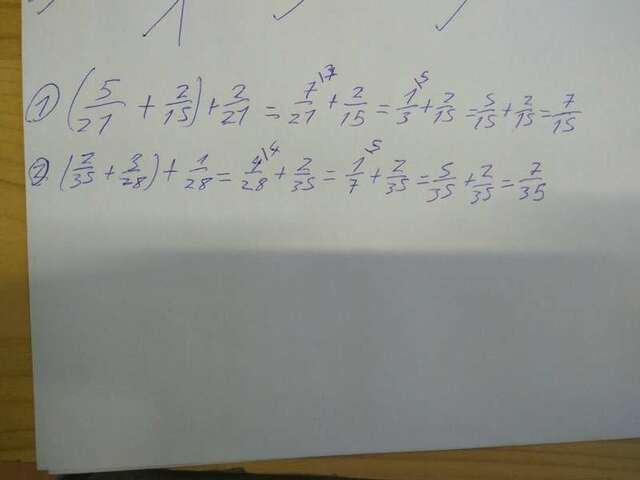 1) (5/21 + 2/15) + 2/21 = 7/21 \7 + 2/15 = 1/3 \5 + 2/15 = 5/15 + 2/15 = 7/15
2) (2/35 + 3/28) + 1/28 = 4/28 \4 + 2/35 = 1/7 \5 + 2/35 = 5/35 + 2/35 = 7/35